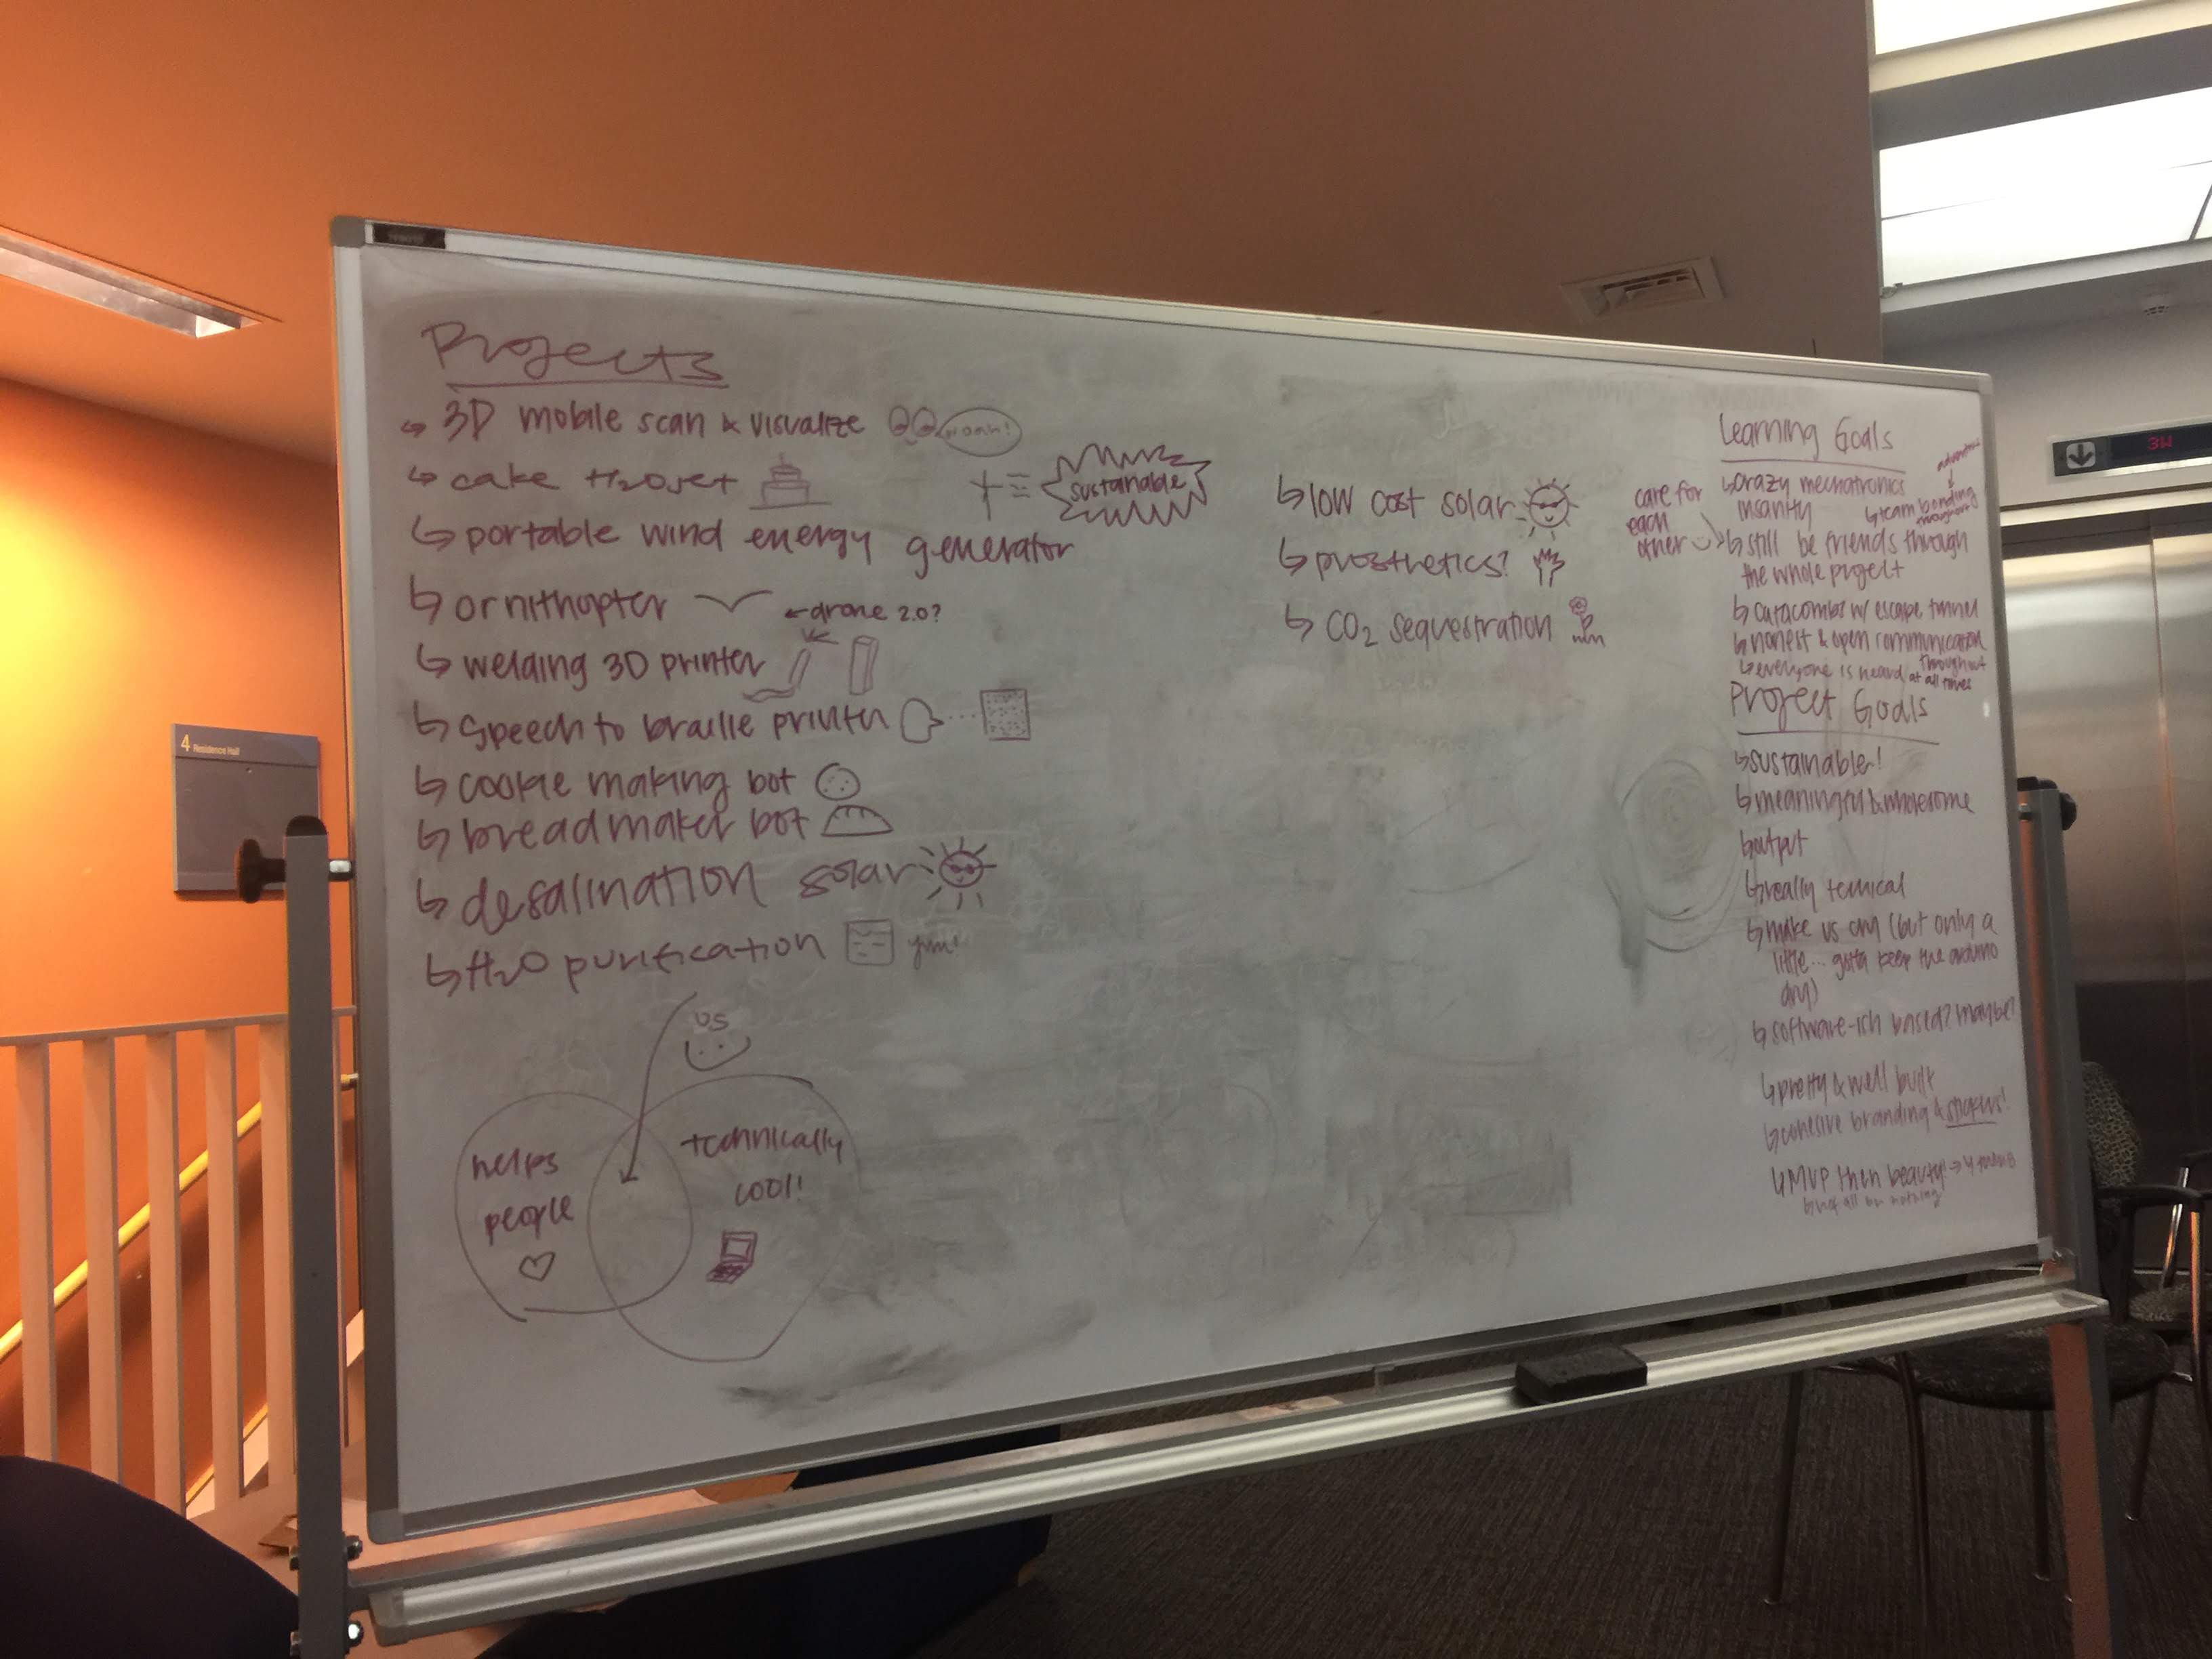 Projects
↳ 3D mobile scan & visualize woah!
↳ cake H2OJet
sustainable
↳ portable wind energy generator
↳ ornithopter ← drone 2.0?
↳ welding 3D printer
↳ speech to braille printer
↳ cookie making bot
↳ bread maker bot
↳ desalination solar
↳ H2O purification yum!
us
helps
people
technically
cool!
↳ low cost solar
↳ prosthetics?
↳ CO2 sequestration
Learning Goals
↳ crazy mechatronics
insanity
↳ team bonding
throughout
care for
each
other
↳ still be friends through
the whole project
↳ catacombs w/ escape tunnel
↳ honest & open communication
throughout
↳ everyone is heard at all times
Project Goals
↳ sustainable!
↳ meaningful & wholesome
↳ output
↳ really technical
↳ make us cry (but only a
little... gotta keep the arduino
dry)
↳ software-ish based? maybe?
↳ pretty & well built
↳ cohesive branding & stickers!
↳ MVP then beauty!
↳ not all or nothing
4 Residence Hall
3W